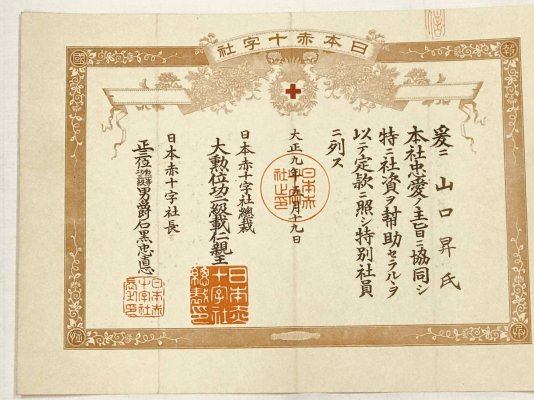 日本赤十字社
報
國
爰ニ山口昇氏
本社忠愛ノ主旨ニ協同シ
特ニ社資ヲ幇助セラルヽヲ
以テ定款ニ照シ特別社員
ニ列ス
大正九年五月十九日
日本赤十字社之印
日本赤十字社總裁
大勲位功一級載仁親王
日本赤十字社總裁印
日本赤十字社長
正三位男爵石黒忠悳
日本赤十字社